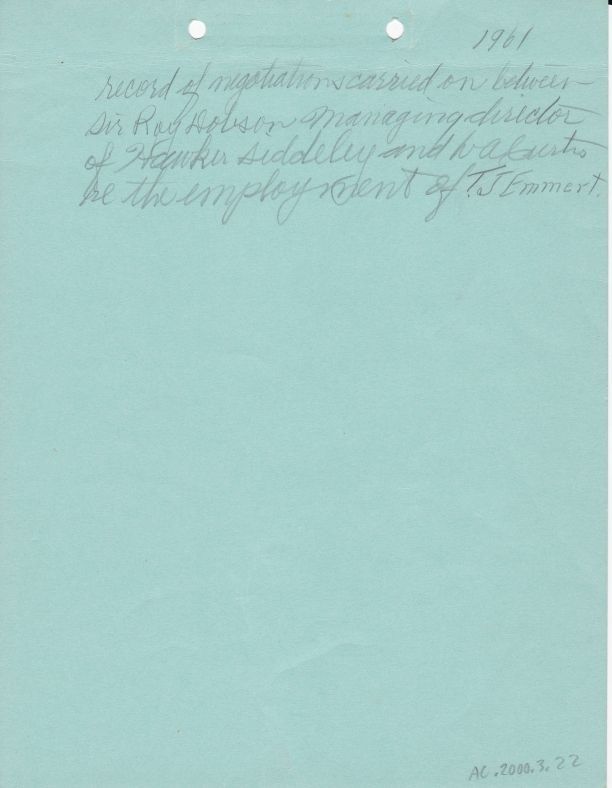 1961
record of negotiations carried on between
Sir Roy Dobson Managing director
of Hawker Siddeley and W A Curtis
re the employment of T.J Emmert.
AC.2000.3.22